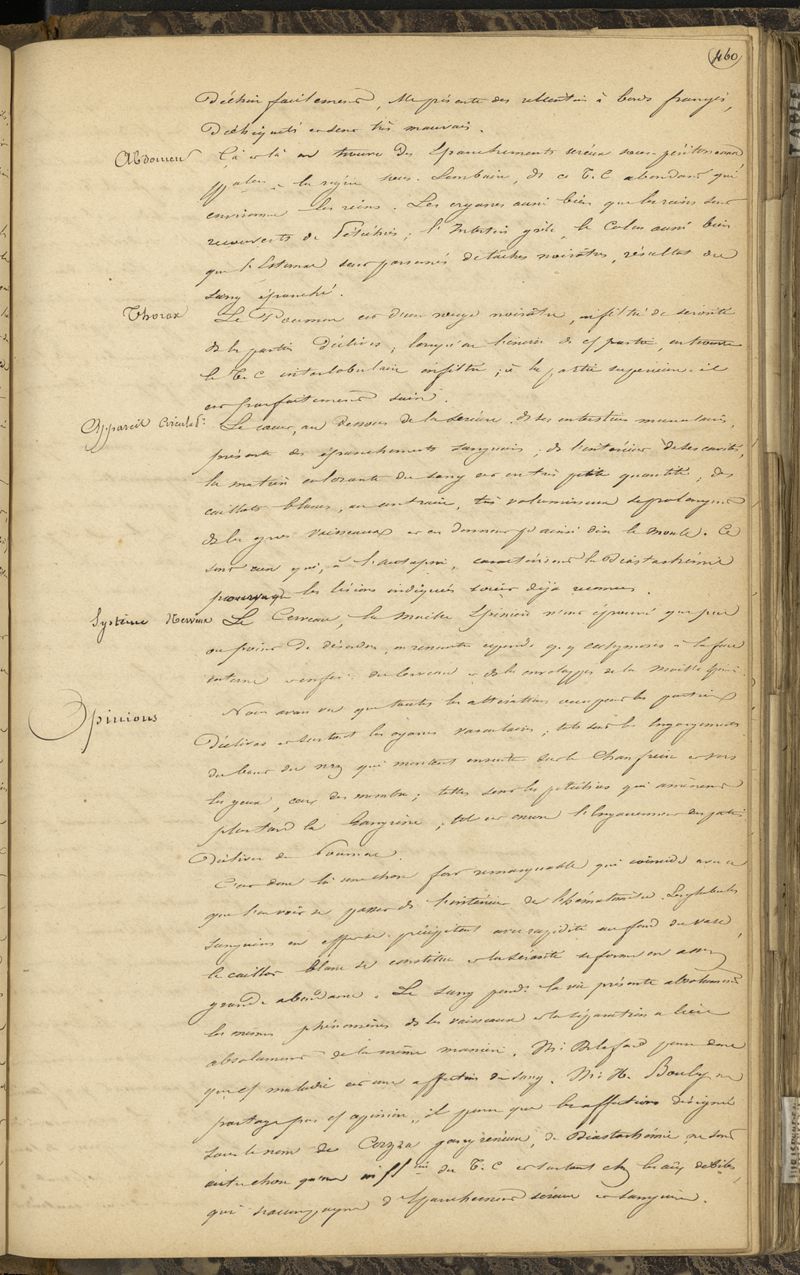 460
Déchire facilement, elle présente des à bords frangés,
Déchiquetés et sent très mauvais.
Abdomen Çà et là on trouve des épanchements séreux sous-péritonéaux
la région sous-lombaire, ds ce T.C abondant qui
environne les reins. Les organes aussi bien que les reins sont
recouverts de Pétéchies; l'Intestin grêle, le Colon aussi bien
que l'Estomac sont parsemés de tâches noirâtres, résultat du
sang épanché.
Thorax Le Poumon est d'un rouge noirâtre, infiltré de sérosité
ds les parties déclives; lorsqu'on l'incise ds cette partie, on trouve
le T.C interlobulaire infiltré; à la partie supérieure il
est parfaitement sain.
Appareil Circulat: Le cœur, au dessous de la séreuse, ds ses interstices musculaires,
présente des épanchements sanguins; ds l'intérieur de ses cavités,
la matière colorante du sang est en très petite quantité, des
caillots blancs, au contraire, très volumineux se prolongent
ds les gros vaisseaux et en donnent pr ainsi dire le moule. Ce
sont eux qui, à l'autopsie, caractérisent la Diastashémie
les lésions indiqués soient déjà reconnues.
Système Nerveux Le Cerveau, la Moëlle Epinière n'ont éprouvé que peu
ou point de désordre, on rencontre cependt qq ecchymoses à la face
interne et infér: du cerveau et ds les enveloppes de la Moëlle épin:
Opinions Nous avons vu que toutes les altérations occupent les parties
déclives et surtout les organes vasculaires; tels sont les engorgements
du bout du nez qui montent ensuite sur le chanfrein et vers
les yeux, ceux des membres; telles sont les pétéchies qui amènent
plus tard la Gangrène; tel est encore l'Engouement des parties
Déclives du Poumon.
C'est donc là une chose fort remarquable qui coïncide avec ce
que l'on voit se passer ds l'intérieur de l'hématomètre. Les globules
sanguins en effet se précipitent avec rapidité au fond du vase,
le caillot blanc se constitue et la sérosité se forme en assez
grande abondance. Le sang pendt la vie présente absolument
les mêmes phénomènes ds les vaisseaux et la séparation a lieu
absolument de la même manière. Mr: Delafond pense donc
que cette maladie est une affection du sang. Mr: H. Bouley ne
partage pas cette opinion, il pense que les affections désignées
sous le nom de Coryza gangréneux, de Diastashémie ne sont
autre chose qu'une du T.C et surtout chez les aux débiles,
qui s'accompagne d'Epanchement séreux et sanguin.